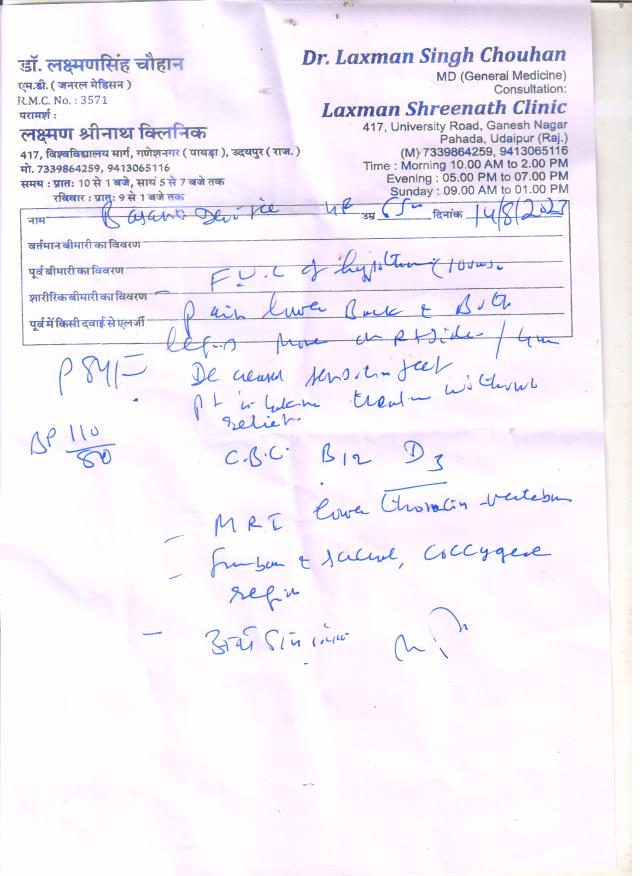 डॉ. लक्ष्मणसिंह चौहान
एम.डी. ( जनरल मेडिसन )
R.M.C. No. : 3571
परामर्श :
लक्ष्मण श्रीनाथ क्लिनिक
417, विश्वविद्यालय मार्ग, गणेशनगर ( पायड़ा ), उदयपुर ( राज. )
मो. 7339864259, 9413065116
समय : प्रातः 10 से 1 बजे, सायं 5 से 7 बजे तक
रविवार : प्रातः 9 से 1 बजे तक
Dr. Laxman Singh Chouhan
MD (General Medicine)
Consultation:
Laxman Shreenath Clinic
417, University Road, Ganesh Nagar
Pahada, Udaipur (Raj.)
(M) 7339864259, 9413065116
Time : Morning 10.00 AM to 2.00 PM
Evening : 05.00 PM to 07.00 PM
Sunday : 09.00 AM to 01.00 PM
नाम उम्र दिनांक 14/8/2023
वर्तमान बीमारी का विवरण
पूर्व बीमारी का विवरण F.U.C of
शारीरिक बीमारी का विवरण Pain lower Back & Both
पूर्व में किसी दवाई से एलर्जी
legs more on Rt side /
P 84/= Decreased sensation feet
relief.
BP 110/80 C.B.C. B12 D3
- MRI lower thoracic vertebra
- & sacral, coccygeal
region